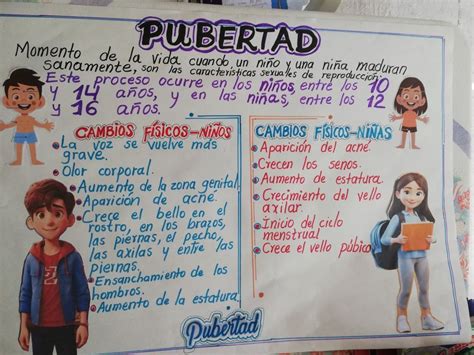 PUBERTAD
Momento de la vida cuando un niño y una niña, maduran
sanamente, son las características sexuales de reproducción.
Este proceso ocurre en los niños, entre los 10
y 14 años, y en las niñas, entre los 12
y 16 años.
CAMBIOS FÍSICOS-NIÑOS
La voz se vuelve más
grave.
Olor corporal.
Aumento de la zona genital
Aparición de acné.
Crece el bello en el
rostro, en los brazos,
las piernas, el pecho,
las axilas y entre las
piernas.
Ensanchamiento de los
hombros.
Aumento de la estatura.
CAMBIOS FÍSICOS-NIÑAS
Aparición del acné.
Crecen los senos.
Aumento de estatura.
Crecimiento del vello
axilar.
Inicio del ciclo
menstrual
Crece el vello púbico
Pubertad